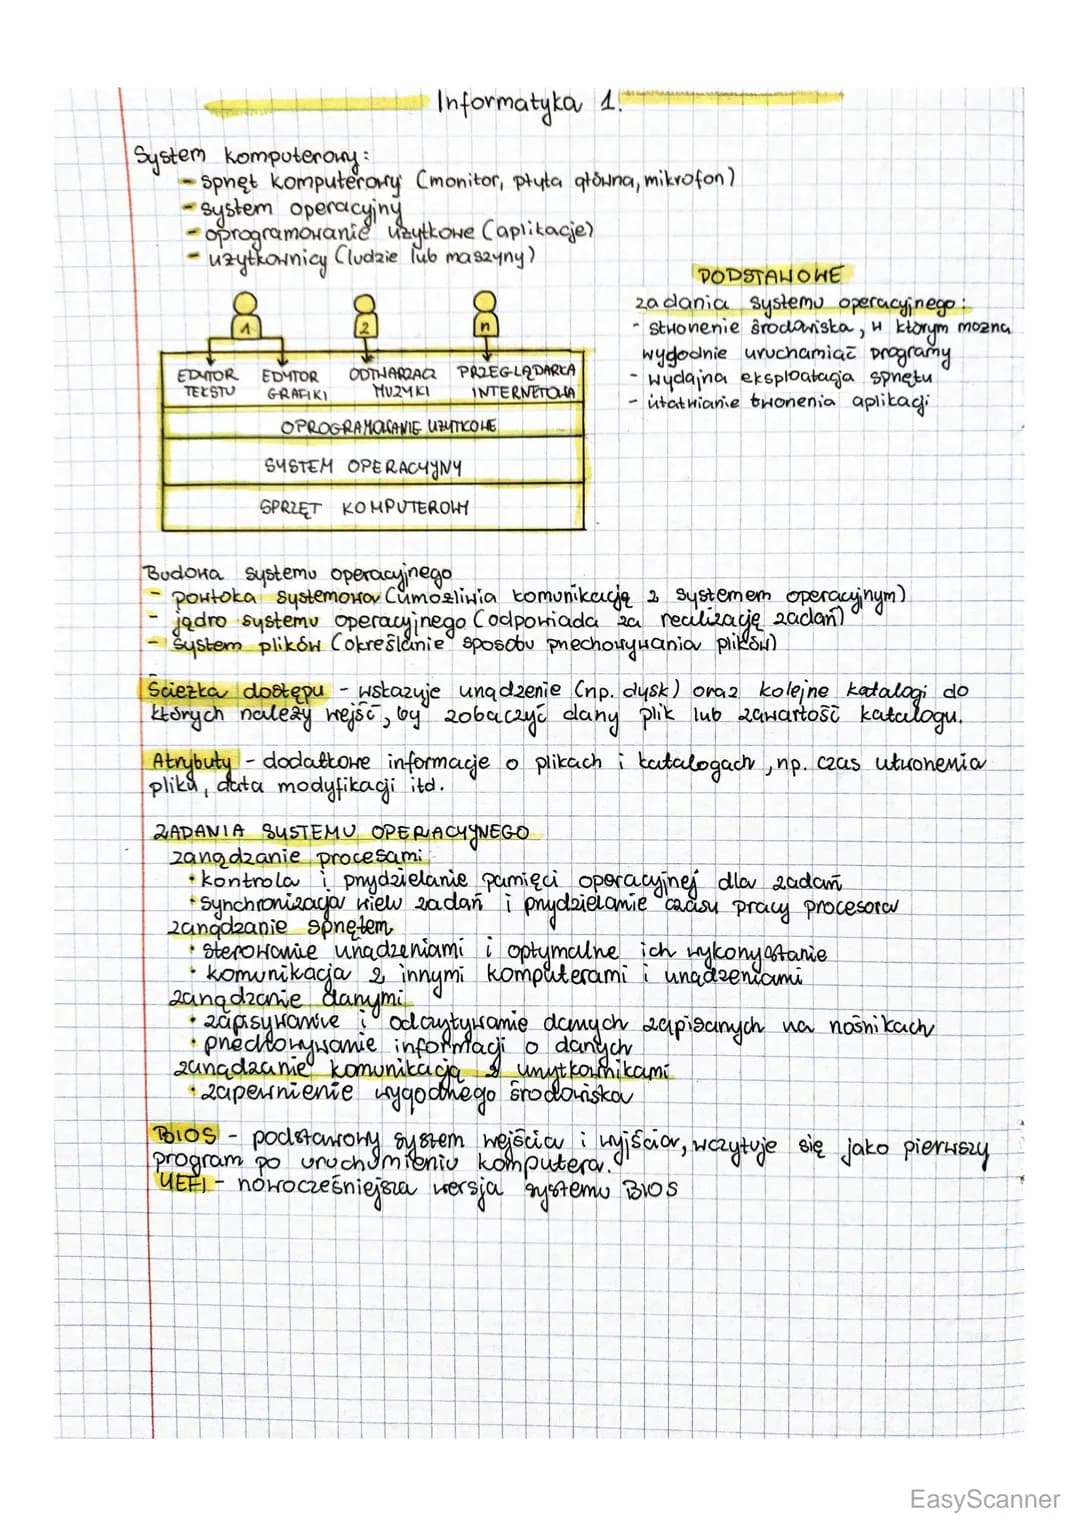 Informatyka 1.
System komputerowy:
- sprzęt komputerowy (monitor, płyta główna, mikrofon)
- system operacyjny
- oprogramowanie użytkowe (aplikacje)
- użytkownicy (ludzie lub maszyny)
PODSTAWOWE
zadania systemu operacyjnego:
- stworzenie środowiska, w którym można
wygodnie uruchamiać programy
- wydajna eksploatacja sprzętu
- ułatwianie tworzenia aplikacji
1 2 n
EDYTOR TEKSTU
EDYTOR GRAFIKI
ODTWARZACZ MUZYKI
PRZEGLĄDARKA INTERNETOWA
OPROGRAMOWANIE UŻYTKOWE
SYSTEM OPERACYJNY
SPRZĘT KOMPUTEROWY
Budowa systemu operacyjnego
- powłoka systemowa (umożliwia komunikację z systemem operacyjnym)
- jądro systemu operacyjnego (odpowiada za realizację zadań)
- system plików (określanie sposobu przechowywania plików)
Ścieżka dostępu - wskazuje urządzenie (np. dysk) oraz kolejne katalogi do
których należy wejść, by zobaczyć dany plik lub zawartość katalogu.
Atrybuty - dodatkowe informacje o plikach i katalogach, np. czas utworzenia
pliku, data modyfikacji itd.
ZADANIA SYSTEMU OPERACYJNEGO
zarządzanie procesami
• kontrola i przydzielanie pamięci operacyjnej dla zadań
• synchronizacja wielu zadań i przydzielanie czasu pracy procesora
zarządzanie sprzętem
• sterowanie urządzeniami i optymalne ich wykorzystanie
• komunikacja z innymi komputerami i urządzeniami
zarządzanie danymi
• zapisywanie i odczytywanie danych zapisanych na nośnikach
• przechowywanie informacji o danych
zarządzanie komunikacją z użytkownikami
• zapewnienie wygodnego środowiska
BIOS - podstawowy system wejścia i wyjścia, wczytuje się jako pierwszy
program po uruchomieniu komputera.
UEFI - nowocześniejsza wersja systemu BIOS
EasyScanner